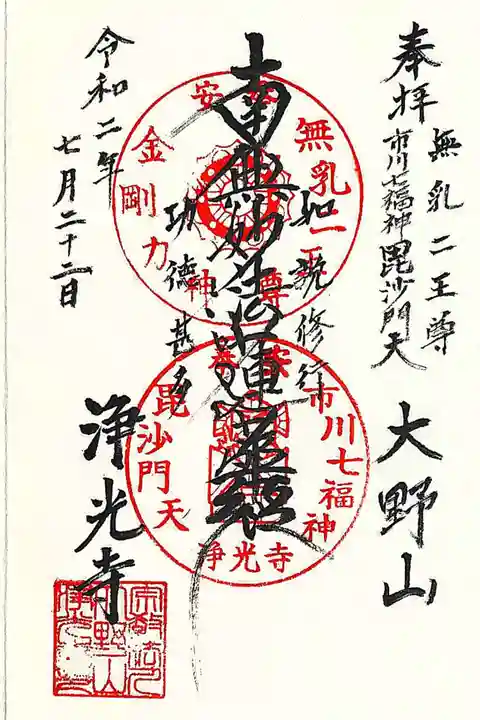 奉拝
無乳二王尊
市川七福神毘沙門天
大野山
如説修行
南無妙法蓮華経
功徳甚多
令和二年
七月二十二日
浄光寺
無乳二王尊
金剛力神
安
市川七福神
毘沙門天
浄光寺